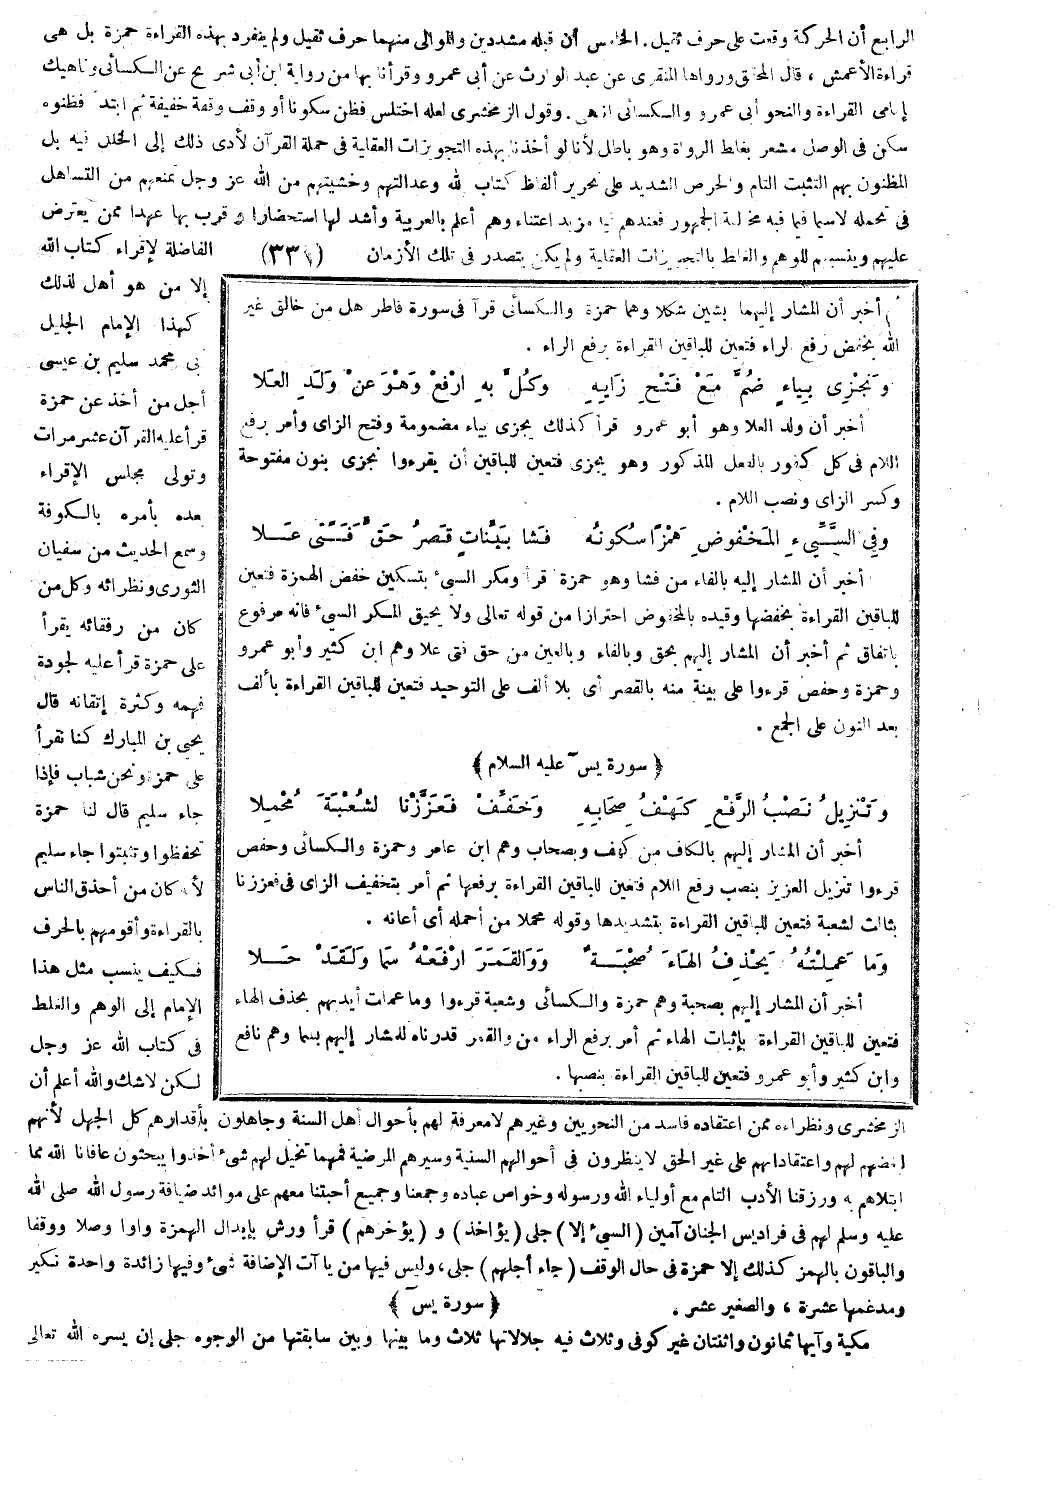 الرابع أن الحركة وقعت على حرف ثقيل. الخامس أن قبله مشددين والموالى منهما حرف ثقيل ولم ينفرد بهذه القراءة حمزة بل هى
قراءة الأعمش ، قال المحقق ورواها المنقرى عن عبد الوارث عن أبى عمرو وقرأنا بها من رواية ابن أبى شريح عن الكسائى وناهيك
بإمامى القراءة والنحو أبى عمرو والكسائى انتهى. وقول الزمخشرى لعله اختلس فظن سكونا أو وقف وقفة خفيفة ثم ابتدأ فظنوه
سكن فى الوصل مشعر بغلط الرواة وهو باطل لأنا لو أخذنا بهذه التجويزات العقلية فى حملة القرآن لأدى ذلك إلى الخلل فيه بل
المظنون بهم التثبت التام والحرص الشديد على تحرير ألفاظ كتاب الله وعدالتهم وخشيتهم من الله عز وجل تمنعهم من التساهل
فى تحمله لاسيما فيما فيه مخالفة الجمهور فعندهم فيه مزيد اعتناء وهم أعلم بالعربية وأشد لها استحضارا وقرب بها عهدا ممن يعترض
عليهم وينسبهم للوهم والغلط بالتجويزات العقلية ولم يكن يتصدر فى تلك الأزمان (٣٣١)
الفاضلة لإقراء كتاب الله
إلا من هو أهل لذلك
كهذا الإمام الجليل
أبى محمد سليم بن عيسى
أجل من أخذ عن حمزة
قرأ عليه القرآن عشر مرات
وتولى مجلس الإقراء
بعده بأمره بالكوفة
وسمع الحديث من سفيان
الثورى ونظرائه وكل من
كان من رفقائه يقرأ
على حمزة قرأ عليه لجودة
فهمه وكثرة إتقانه قال
يحيى بن المبارك كنا نقرأ
على حمزة ونحن شباب فإذا
جاء سليم قال لنا حمزة
تحفظوا وتثبتوا جاء سليم
لأنه كان من أحذق الناس
بالقراءة وأقومهم بالحرف
فكيف ينسب مثل هذا
الإمام إلى الوهم والغلط
فى كتاب الله عز وجل
لكن لاشك والله أعلم أن
أخبر أن المشار إليهما بشين شكلا وهما حمزة والكسائى قرآ فى سورة فاطر هل من خالق غير
الله بخفض رفع الراء فتعين للباقين القراءة برفع الراء .
وَنَجْزِى بِيَاءٍ ضُمَّ مَعْ فَتْحِ زَايِهِ وَكُلَّ بِهِ ارْفَعْ وَهْوَ عَنْ وَلَدِ العَلَا
أخبر أن ولد العلا وهو أبو عمرو قرأ كذلك يجزى بياء مضمومة وفتح الزاى وأمر برفع
اللام فى كل كفور بالفعل المذكور وهو يجزى فتعين للباقين أن يقرءوا نجزى بنون مفتوحة
وكسر الزاى ونصب اللام .
وَفِى السَّيِّىءِ المَخْفُوضِ هَمْزًا سُكُونُهُ فَشَا بَيِّنَاتٍ قَصْرُ حَقٍّ فَتًى عَلَا
أخبر أن المشار إليه بالفاء من فشا وهو حمزة قرأ ومكر السيئ بتسكين خفض الهمزة فتعين
للباقين القراءة بخفضها وقيده بالمخفوض احترازا من قوله تعالى ولا يحيق المكر السيئ فانه مرفوع
باتفاق ثم أخبر أن المشار إليهم بحق وبالفاء وبالعين من حق فتى علا وهم ابن كثير وأبو عمرو
وحمزة وحفص قرءوا على بينة منه بالقصر أى بلا ألف على التوحيد فتعين للباقين القراءة بألف
بعد النون على الجمع .
﴿ سورة يس عليه السلام ﴾
وَتَنْزِيلُ نَصْبُ الرَّفْعِ كَهْفُ صِحَابِهِ وَخَفِّفْ فَعَزَّزْنَا لِشُعْبَةَ مُحْمِلَا
أخبر أن المشار إليهم بالكاف من كهف وبصحاب وهم ابن عامر وحمزة والكسائى وحفص
قرءوا تنزيل العزيز بنصب رفع اللام فتعين للباقين القراءة برفعها ثم أمر بتخفيف الزاى فى فعززنا
بثالث لشعبة فتعين للباقين القراءة بتشديدها وقوله محملا من أحمله أى أعانه .
وَمَا عَمِلَتْهُ يَحْذِفُ الهَاءَ صُحْبَةٌ وَوَالقَمَرَ ارْفَعْهُ سَمَا وَلَقَدْ حَلَا
أخبر أن المشار إليهم بصحبة وهم حمزة والكسائى وشعبة قرءوا وما عملت أيديهم بحذف الهاء
فتعين للباقين القراءة بإثبات الهاء ثم أمر برفع الراء من والقمر قدرناه للمشار إليهم بسما وهم نافع
وابن كثير وأبو عمرو فتعين للباقين القراءة بنصبها .
الزمخشرى ونظراءه ممن اعتقاده فاسد من النحويين وغيرهم لامعرفة لهم بأحوال أهل السنة وجاهلون بأقدارهم كل الجهل لأنهم
لبغضهم لهم واعتقاداتهم على غير الحق لاينظرون فى أحوالهم السنية وسيرهم المرضية فمهما تخيل لهم شىء أخذوا يبحثون عافانا الله مما
ابتلاهم به ورزقنا الأدب التام مع أولياء الله ورسوله وخواص عباده وجمعنا وجميع أحبتنا معهم على موائد ضيافة رسول الله صلى الله
عليه وسلم لهم فى فراديس الجنان آمين (السىء إلا) جلى (يؤاخذ) و (يؤخرهم) قرأ ورش بإبدال الهمزة واوا وصلا ووقفا
والباقون بالهمز كذلك إلا حمزة فى حال الوقف (جاء أجلهم) جلى، وليس فيها من يا آت الإضافة شىء وفيها زائدة واحدة نكير
ومدغمها عشرة ، والصغير عشر . ﴿ سورة يس ﴾
مكية وآيها ثمانون واثنتان غير كوفى وثلاث فيه جلالاتها ثلاث وما بينها وبين سابقتها من الوجوه جلى إن يسره الله تعالى